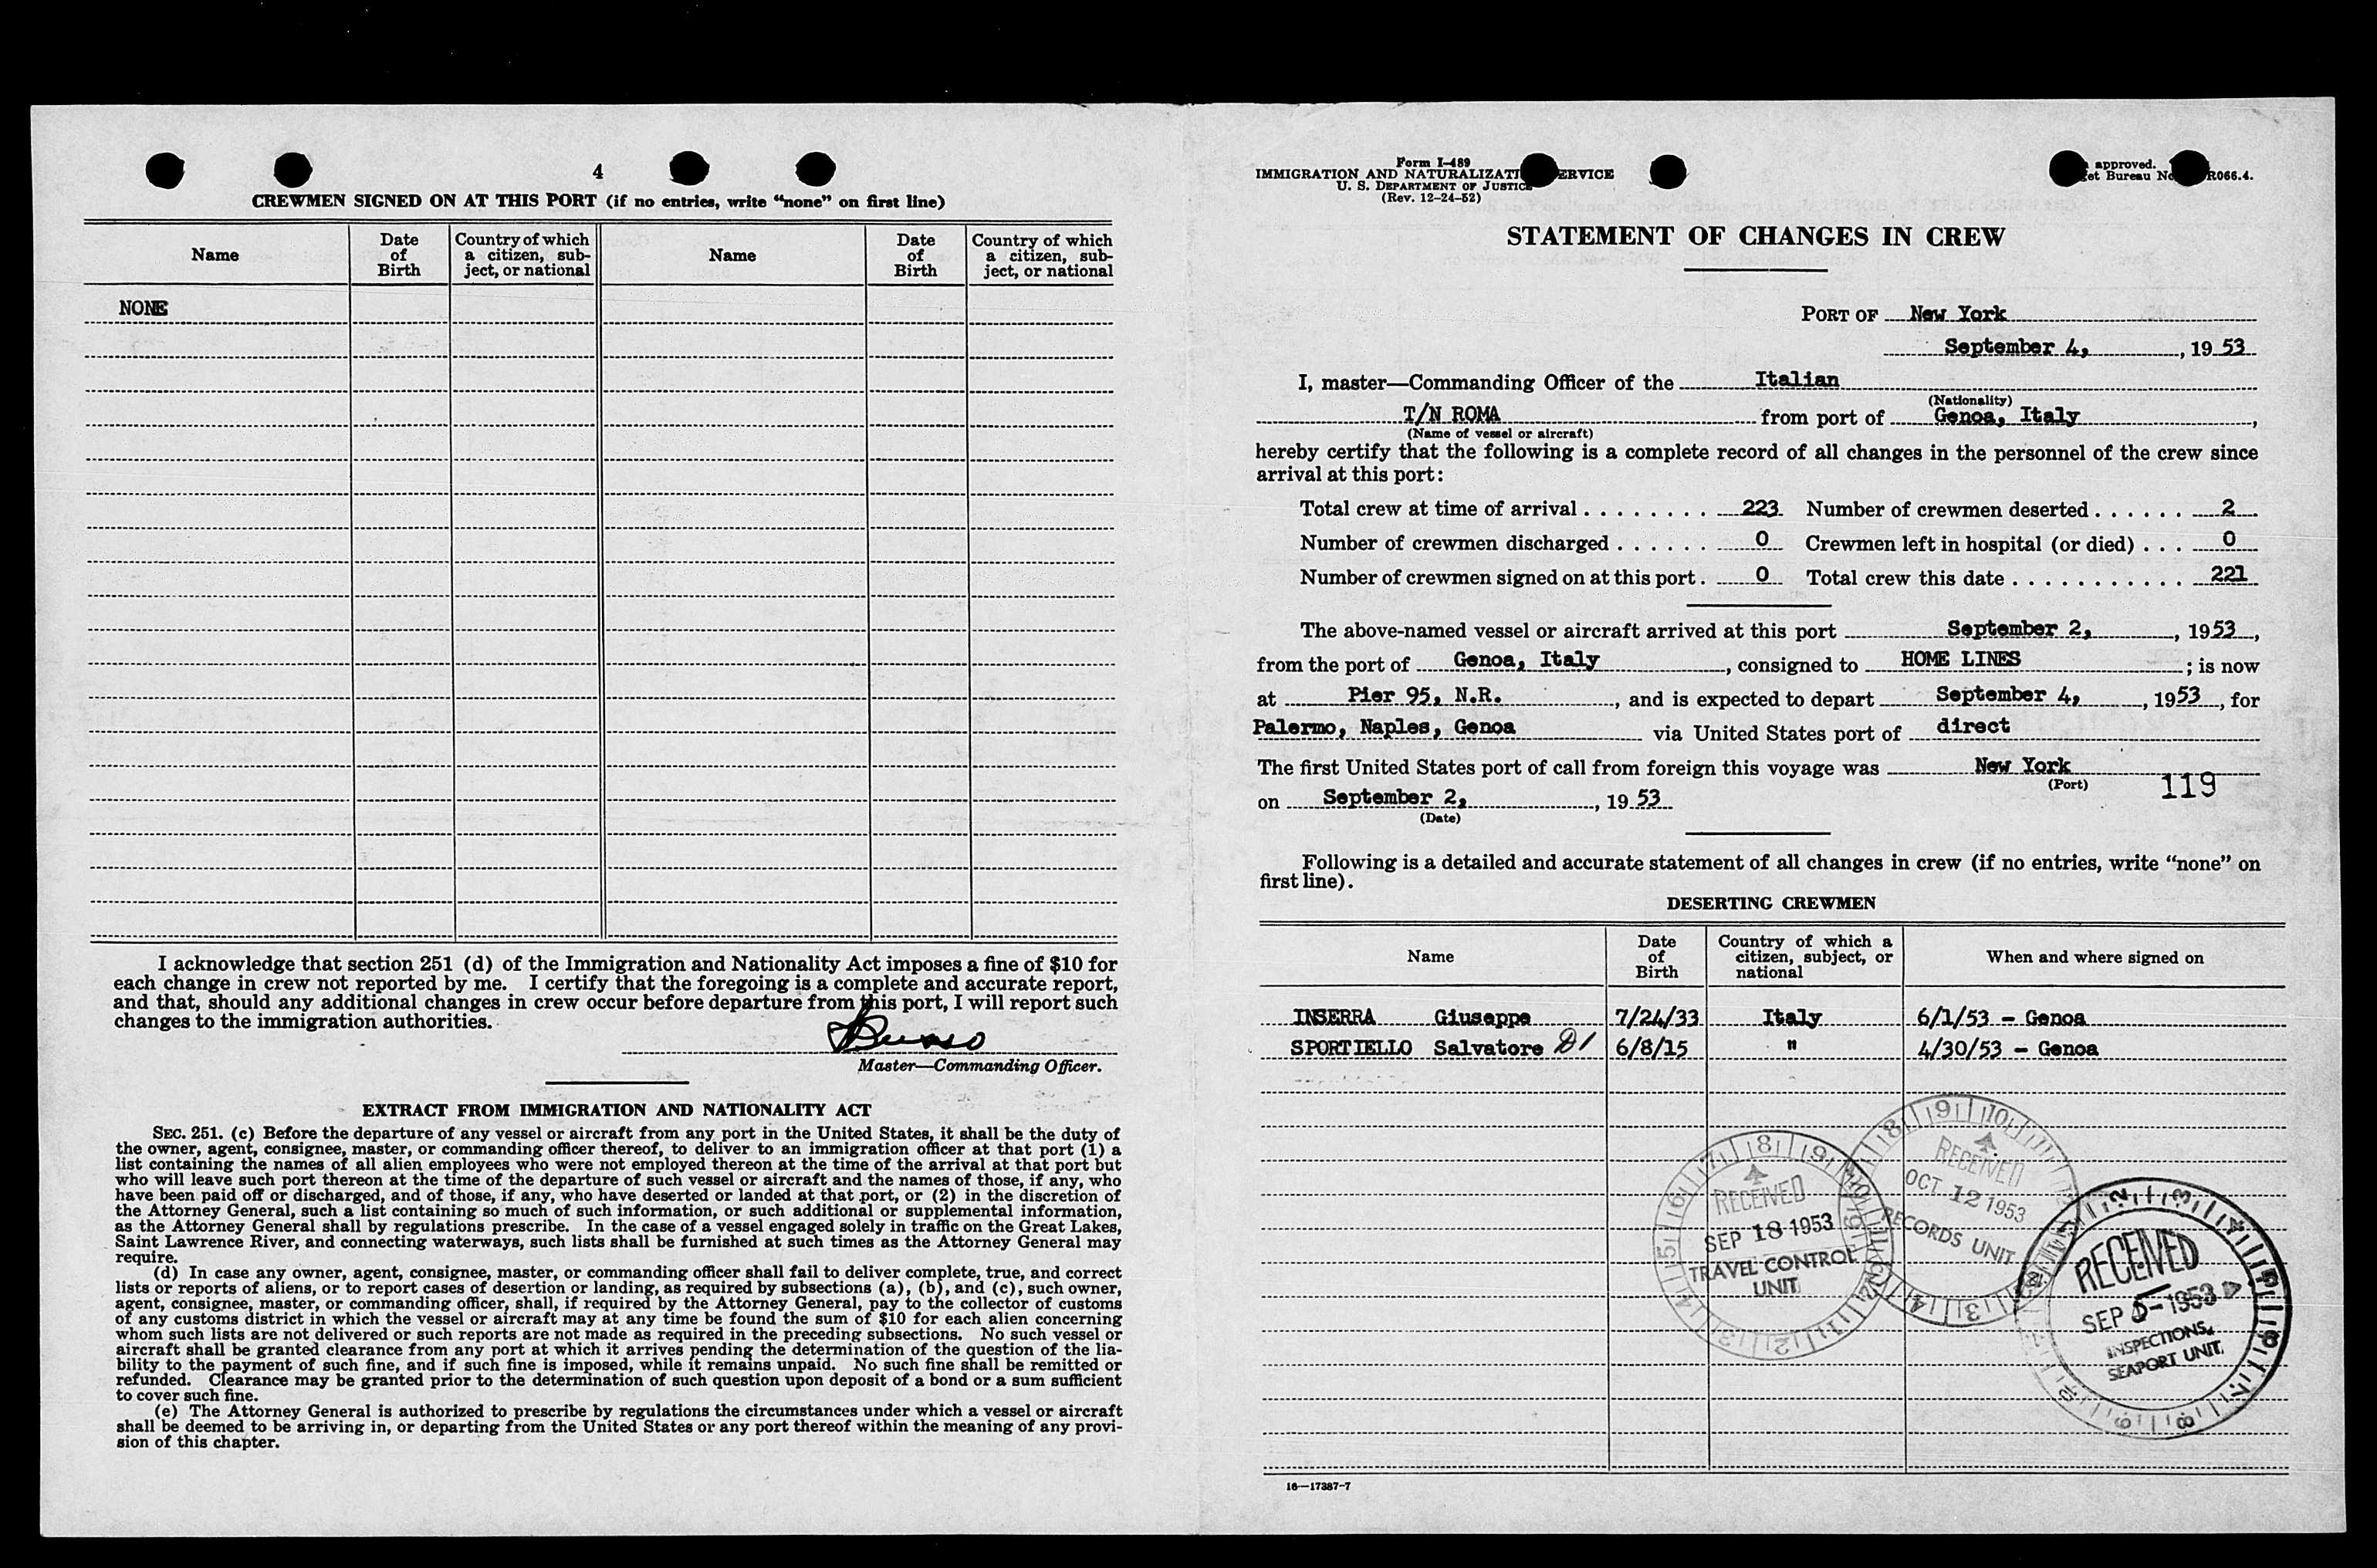 4
CREWMEN SIGNED ON AT THIS PORT (if no entries, write “none” on first line)
Name
Date of Birth
Country of which a citizen, subject, or national
Name
Date of Birth
Country of which a citizen, subject, or national
NONE
I acknowledge that section 251 (d) of the Immigration and Nationality Act imposes a fine of $10 for
each change in crew not reported by me. I certify that the foregoing is a complete and accurate report,
and that, should any additional changes in crew occur before departure from this port, I will report such
changes to the immigration authorities.
Master—Commanding Officer.
EXTRACT FROM IMMIGRATION AND NATIONALITY ACT
SEC. 251. (c) Before the departure of any vessel or aircraft from any port in the United States, it shall be the duty of
the owner, agent, consignee, master, or commanding officer thereof, to deliver to an immigration officer at that port (1) a
list containing the names of all alien employees who were not employed thereon at the time of the arrival at that port but
who will leave such port thereon at the time of the departure of such vessel or aircraft and the names of those, if any, who
have been paid off or discharged, and of those, if any, who have deserted or landed at that port, or (2) in the discretion of
the Attorney General, such a list containing so much of such information, or such additional or supplemental information,
as the Attorney General shall by regulations prescribe. In the case of a vessel engaged solely in traffic on the Great Lakes,
Saint Lawrence River, and connecting waterways, such lists shall be furnished at such times as the Attorney General may
require.
(d) In case any owner, agent, consignee, master, or commanding officer shall fail to deliver complete, true, and correct
lists or reports of aliens, or to report cases of desertion or landing, as required by subsections (a), (b), and (c), such owner,
agent, consignee, master, or commanding officer, shall, if required by the Attorney General, pay to the collector of customs
of any customs district in which the vessel or aircraft may at any time be found the sum of $10 for each alien concerning
whom such lists are not delivered or such reports are not made as required in the preceding subsections. No such vessel or
aircraft shall be granted clearance from any port at which it arrives pending the determination of the question of the lia-
bility to the payment of such fine, and if such fine is imposed, while it remains unpaid. No such fine shall be remitted or
refunded. Clearance may be granted prior to the determination of such question upon deposit of a bond or a sum sufficient
to cover such fine.
(e) The Attorney General is authorized to prescribe by regulations the circumstances under which a vessel or aircraft
shall be deemed to be arriving in, or departing from the United States or any port thereof within the meaning of any provi-
sion of this chapter.
Form I-489
IMMIGRATION AND NATURALIZATI ERVICE
U. S. DEPARTMENT OF JUSTICE
(Rev. 12-24-52)
approved.
et Bureau No R066.4.
STATEMENT OF CHANGES IN CREW
PORT OF New York
September 4, , 19 53
I, master—Commanding Officer of the Italian
(Nationality)
T/N ROMA from port of Genoa, Italy ,
(Name of vessel or aircraft)
hereby certify that the following is a complete record of all changes in the personnel of the crew since
arrival at this port:
Total crew at time of arrival . . . . . . . . 223 Number of crewmen deserted . . . . . . 2
Number of crewmen discharged . . . . . . 0 Crewmen left in hospital (or died) . . . 0
Number of crewmen signed on at this port . 0 Total crew this date . . . . . . . . . . . 221
The above-named vessel or aircraft arrived at this port September 2, , 19 53 ,
from the port of Genoa, Italy , consigned to HOME LINES ; is now
at Pier 95, N.R. , and is expected to depart September 4, , 19 53 , for
Palermo, Naples, Genoa via United States port of direct
The first United States port of call from foreign this voyage was New York
(Port)
119
on September 2, , 19 53
(Date)
Following is a detailed and accurate statement of all changes in crew (if no entries, write “none” on
first line).
DESERTING CREWMEN
Name
Date of Birth
Country of which a citizen, subject, or national
When and where signed on
INSERRA Giuseppe 7/24/33 Italy 6/1/53 - Genoa
SPORTIELLO Salvatore DI 6/8/15 " 4/30/53 - Genoa
RECEIVED
SEP 18 1953
TRAVEL CONTROL
UNIT
RECEIVED
OCT 12 1953
RECORDS UNIT
RECEIVED
SEP 5- 1953
INSPECTIONS
SEAPORT UNIT
16—17387-7